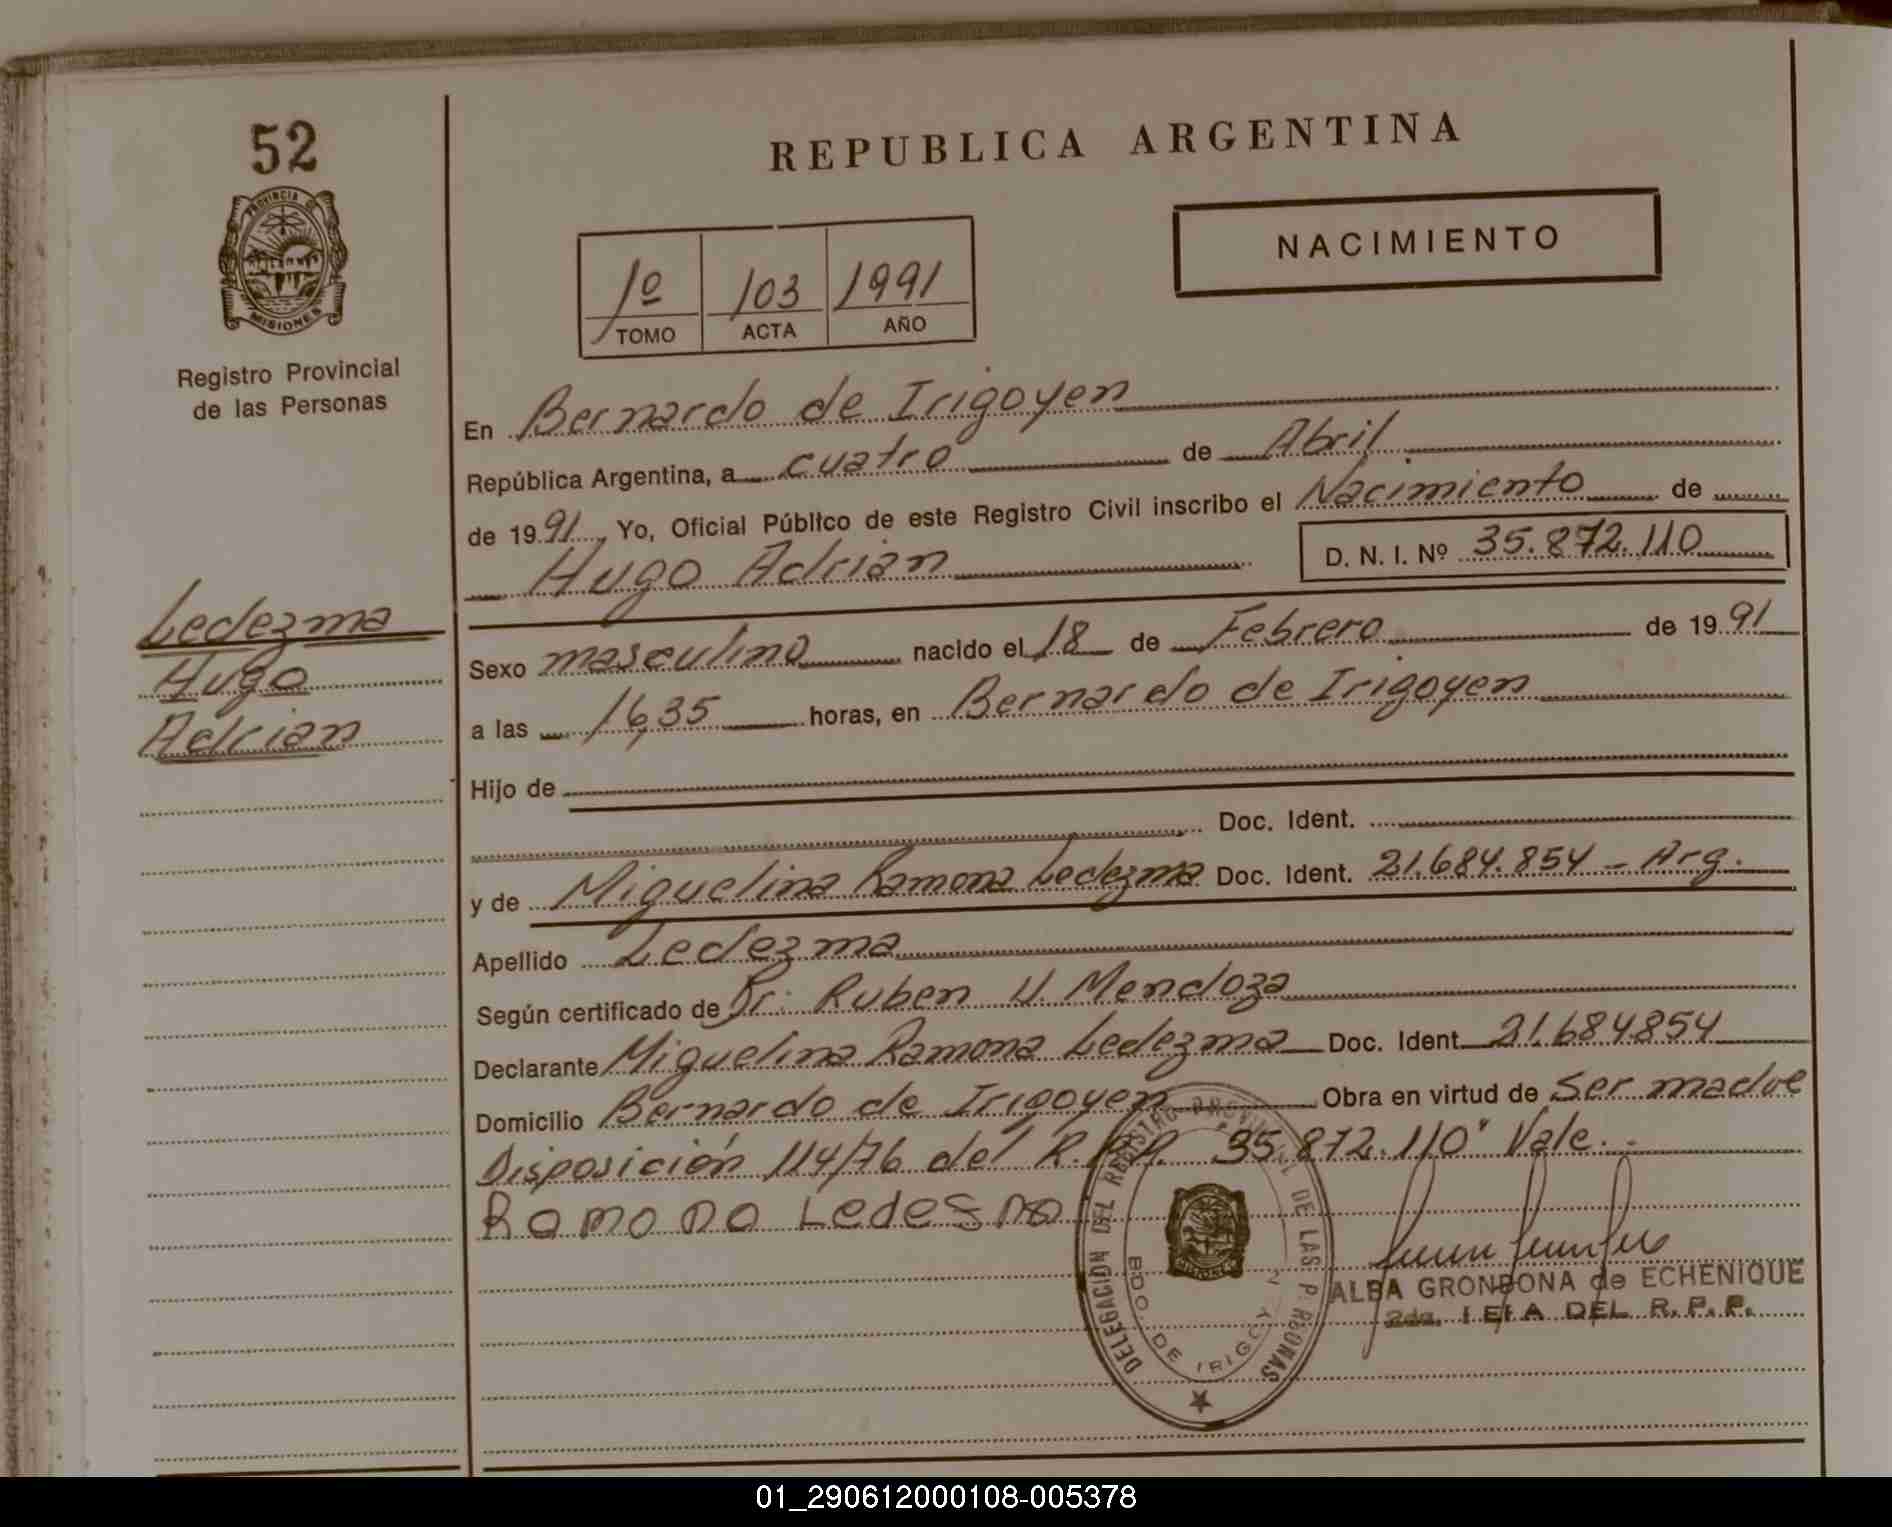 52
PROVINCIA DE
MISIONES
Registro Provincial
de las Personas
Ledezma
Hugo
Adrian
REPUBLICA ARGENTINA
NACIMIENTO
1º 103 1991
TOMO ACTA AÑO
En Bernardo de Irigoyen
República Argentina, a cuatro de Abril
de 1991, Yo, Oficial Público de este Registro Civil inscribo el Nacimiento de
Hugo Adrián D. N. I. Nº 35.872.110
Sexo masculino nacido el 18 de Febrero de 1991
a las 16,35 horas, en Bernardo de Irigoyen
Hijo de
Doc. Ident.
y de Miguelina Ramona Ledezma Doc. Ident. 21.684.854 - Arg.
Apellido Ledezma
Según certificado de Dr. Ruben U. Mendoza
Declarante Miguelina Ramona Ledezma Doc. Ident. 21.684.854
Domicilio Bernardo de Irigoyen Obra en virtud de Ser madre
Disposición 114/76 del R.P.P. 35.872.110" Vale.
Ramona Ledesma
DELEGACION DEL REGISTRO PROVINCIAL DE LAS PERSONAS
BDO. DE IRIGOYEN
MISIONES
ALBA GRONDONA de ECHENIQUE
2da. JEFA DEL R. P. P.
01_290612000108-005378